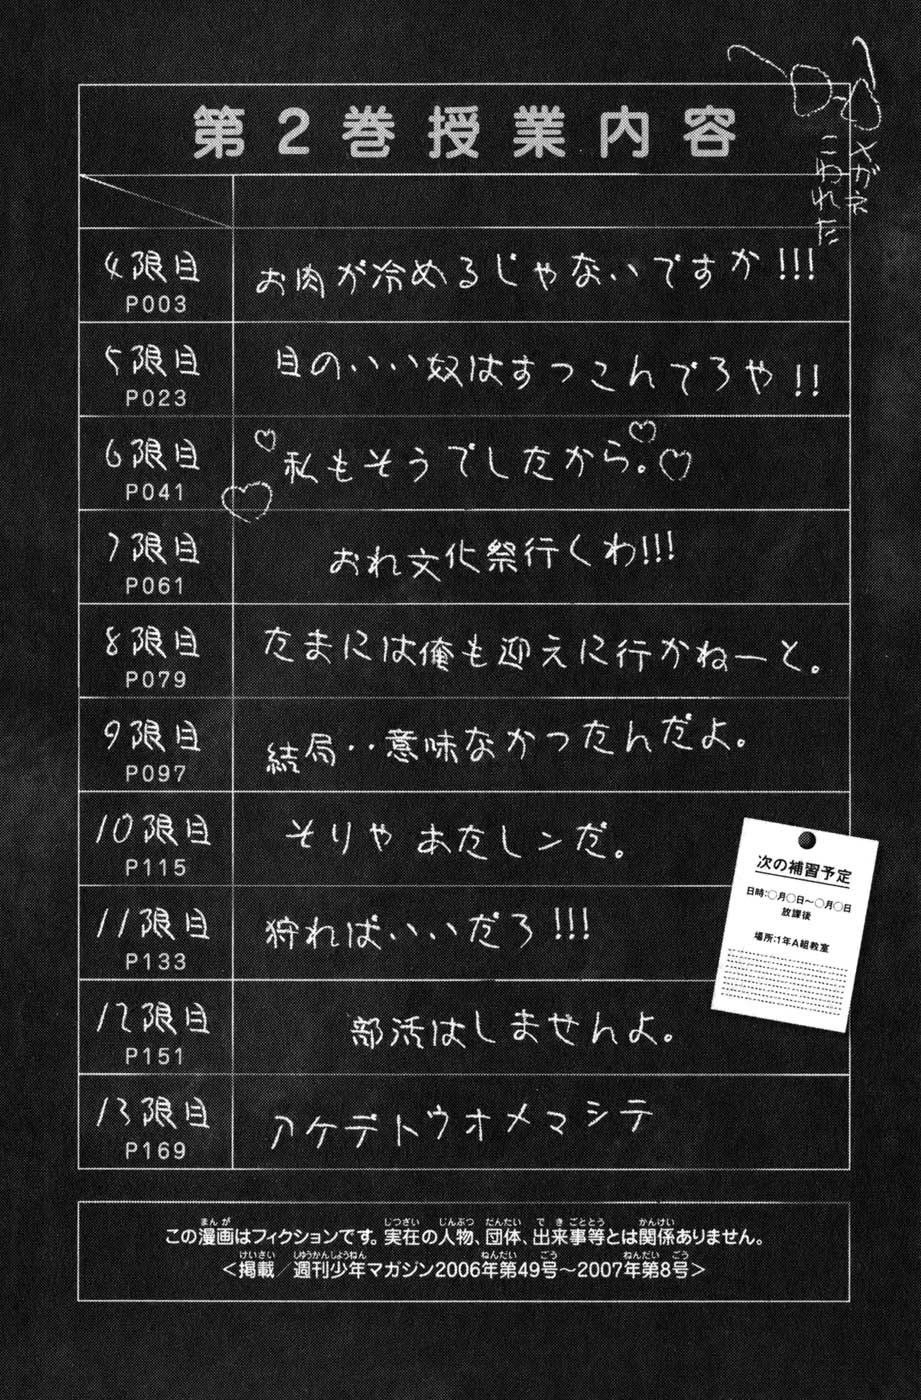 第2巻授業内容
メガネ
こわれた
4限目
P003
お肉が冷めるじゃないですか!!!
5限目
P023
目のいい奴はすっこんでろや!!
6限目
P041
私もそうでしたから。
7限目
P061
おれ文化祭行くわ!!!
8限目
P079
たまには俺も迎えに行かねーと。
9限目
P097
結局‥意味なかったんだよ。
10限目
P115
そりゃ あたしンだ。
11限目
P133
狩ればいいだろ!!!
12限目
P151
部活はしませんよ。
13限目
P169
アケデトウオメマシテ
次の補習予定
日時:○月○日~○月○日
放課後
場所:1年A組教室
まんが じつざい じんぶつ だんたい できごととう かんけい
この漫画はフィクションです。実在の人物、団体、出来事等とは関係ありません。
けいさい しゅうかんしょうねん ねんだい ごう ねんだい ごう
<掲載/週刊少年マガジン2006年第49号~2007年第8号>